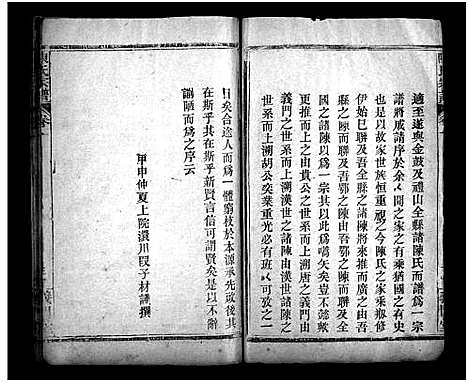 適至遂與金鼓及禮山全縣諸陳氏而譜爲一宗
譜將成請序於余〻聞之家之有乘猶國之有史
也是以故家世族恒重視之今陳氏之家乘剙修
伊始巳聯及吾全縣之諸陳將來推而廣之由吾
縣之陳而聯及吾鄂之陳由吾鄂之陳而聯及全
國之諸陳以爲一宗其以此爲嚆矢矣豈不懿歟
義門之陳而上之由貴公之世系而上溯唐之
世系而上溯漢世之諸陳由漢世諸陳之
世系而上溯胡公奕業重光必有班〻可攷之一
日矣合逵人而爲一體窮枝於本源承先啟後其
在斯乎其在斯乎新賢言信可謂賢矣是以不辭
譾陋而爲之序云
甲申仲夏上院澴川段子材謹撰
陳氏宗譜